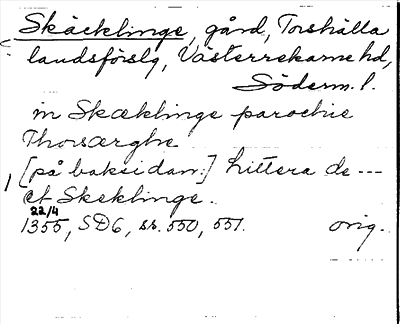 Skäcklinge, gård, Torshälla
landsförslg, Västerrekarne hd,
Söderm. l.
in Skæklinge parochie
Thorsærghe
[på baksidan:] littera de ---
et Skeklinge.
22/4
1355, SD6, ss. 550, 551. orig.